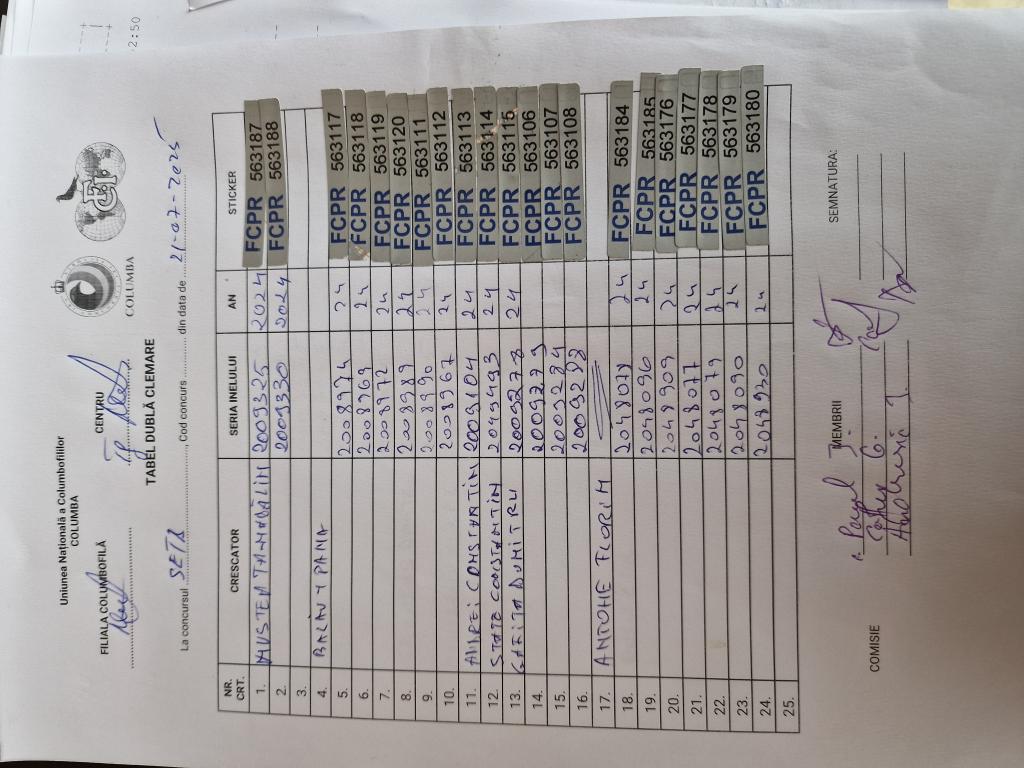 Uniunea Națională a Columbofililor
COLUMBA
FILIALA COLUMBOFILĂ CENTRU
COLUMBA
TABEL DUBLĂ CLEMARE
La concursul SETA , Cod concurs din data de 21-07-2025
NR. CRT. CRESCATOR SERIA INELULUI AN STICKER
1. MUSTEȚA MĂDĂLIN 2009325 2024 FCPR 563187
2. 2009330 2024 FCPR 563188
3.
4.
5. 2008974 24 FCPR 563117
6. 2008969 24 FCPR 563118
7. 2008972 24 FCPR 563119
8. 2008989 24 FCPR 563120
9. 2008990 24 FCPR 563111
10. 2008967 24 FCPR 563112
11. CONSTANTIN 2009104 24 FCPR 563113
12. STATE CONSTANTIN 2049493 24 FCPR 563114
13. DUMITRU 2009278 24 FCPR 563115
14. 2009279 FCPR 563106
15. 2009284 FCPR 563107
16. 2009288 FCPR 563108
17. ANTOHE FLORIN
18. 2048078 24 FCPR 563184
19. 2048096 24 FCPR 563185
20. 2048909 24 FCPR 563176
21. 2048077 24 FCPR 563177
22. 2048079 24 FCPR 563178
23. 2048090 24 FCPR 563179
24. 2048930 24 FCPR 563180
25.
COMISIE MEMBRII SEMNATURA: